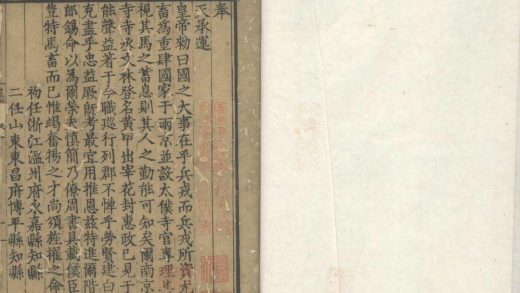 奉
天承運
皇帝勑曰國之大事在乎兵戎而兵戎所資尤
畜為重肆國家于兩京並設太僕寺官專理
視其馬之蓄息則其人之勤能可知矣爾南京
寺寺丞文林登名黃甲出宰花封惠政已見于
能聲益著于今職巡行列郡不憚乎勞賢建白
克盡乎忠益厥旣考最宜用推恩茲特進爾階
郎錫命以為爾榮夫慎簡乃僚周書具載侯臣
豈特馬畜而已惟竭奮揚之才尚頌旌擢之命
初任浙江溫州府永嘉縣知縣
二任山東東昌府博平縣知縣